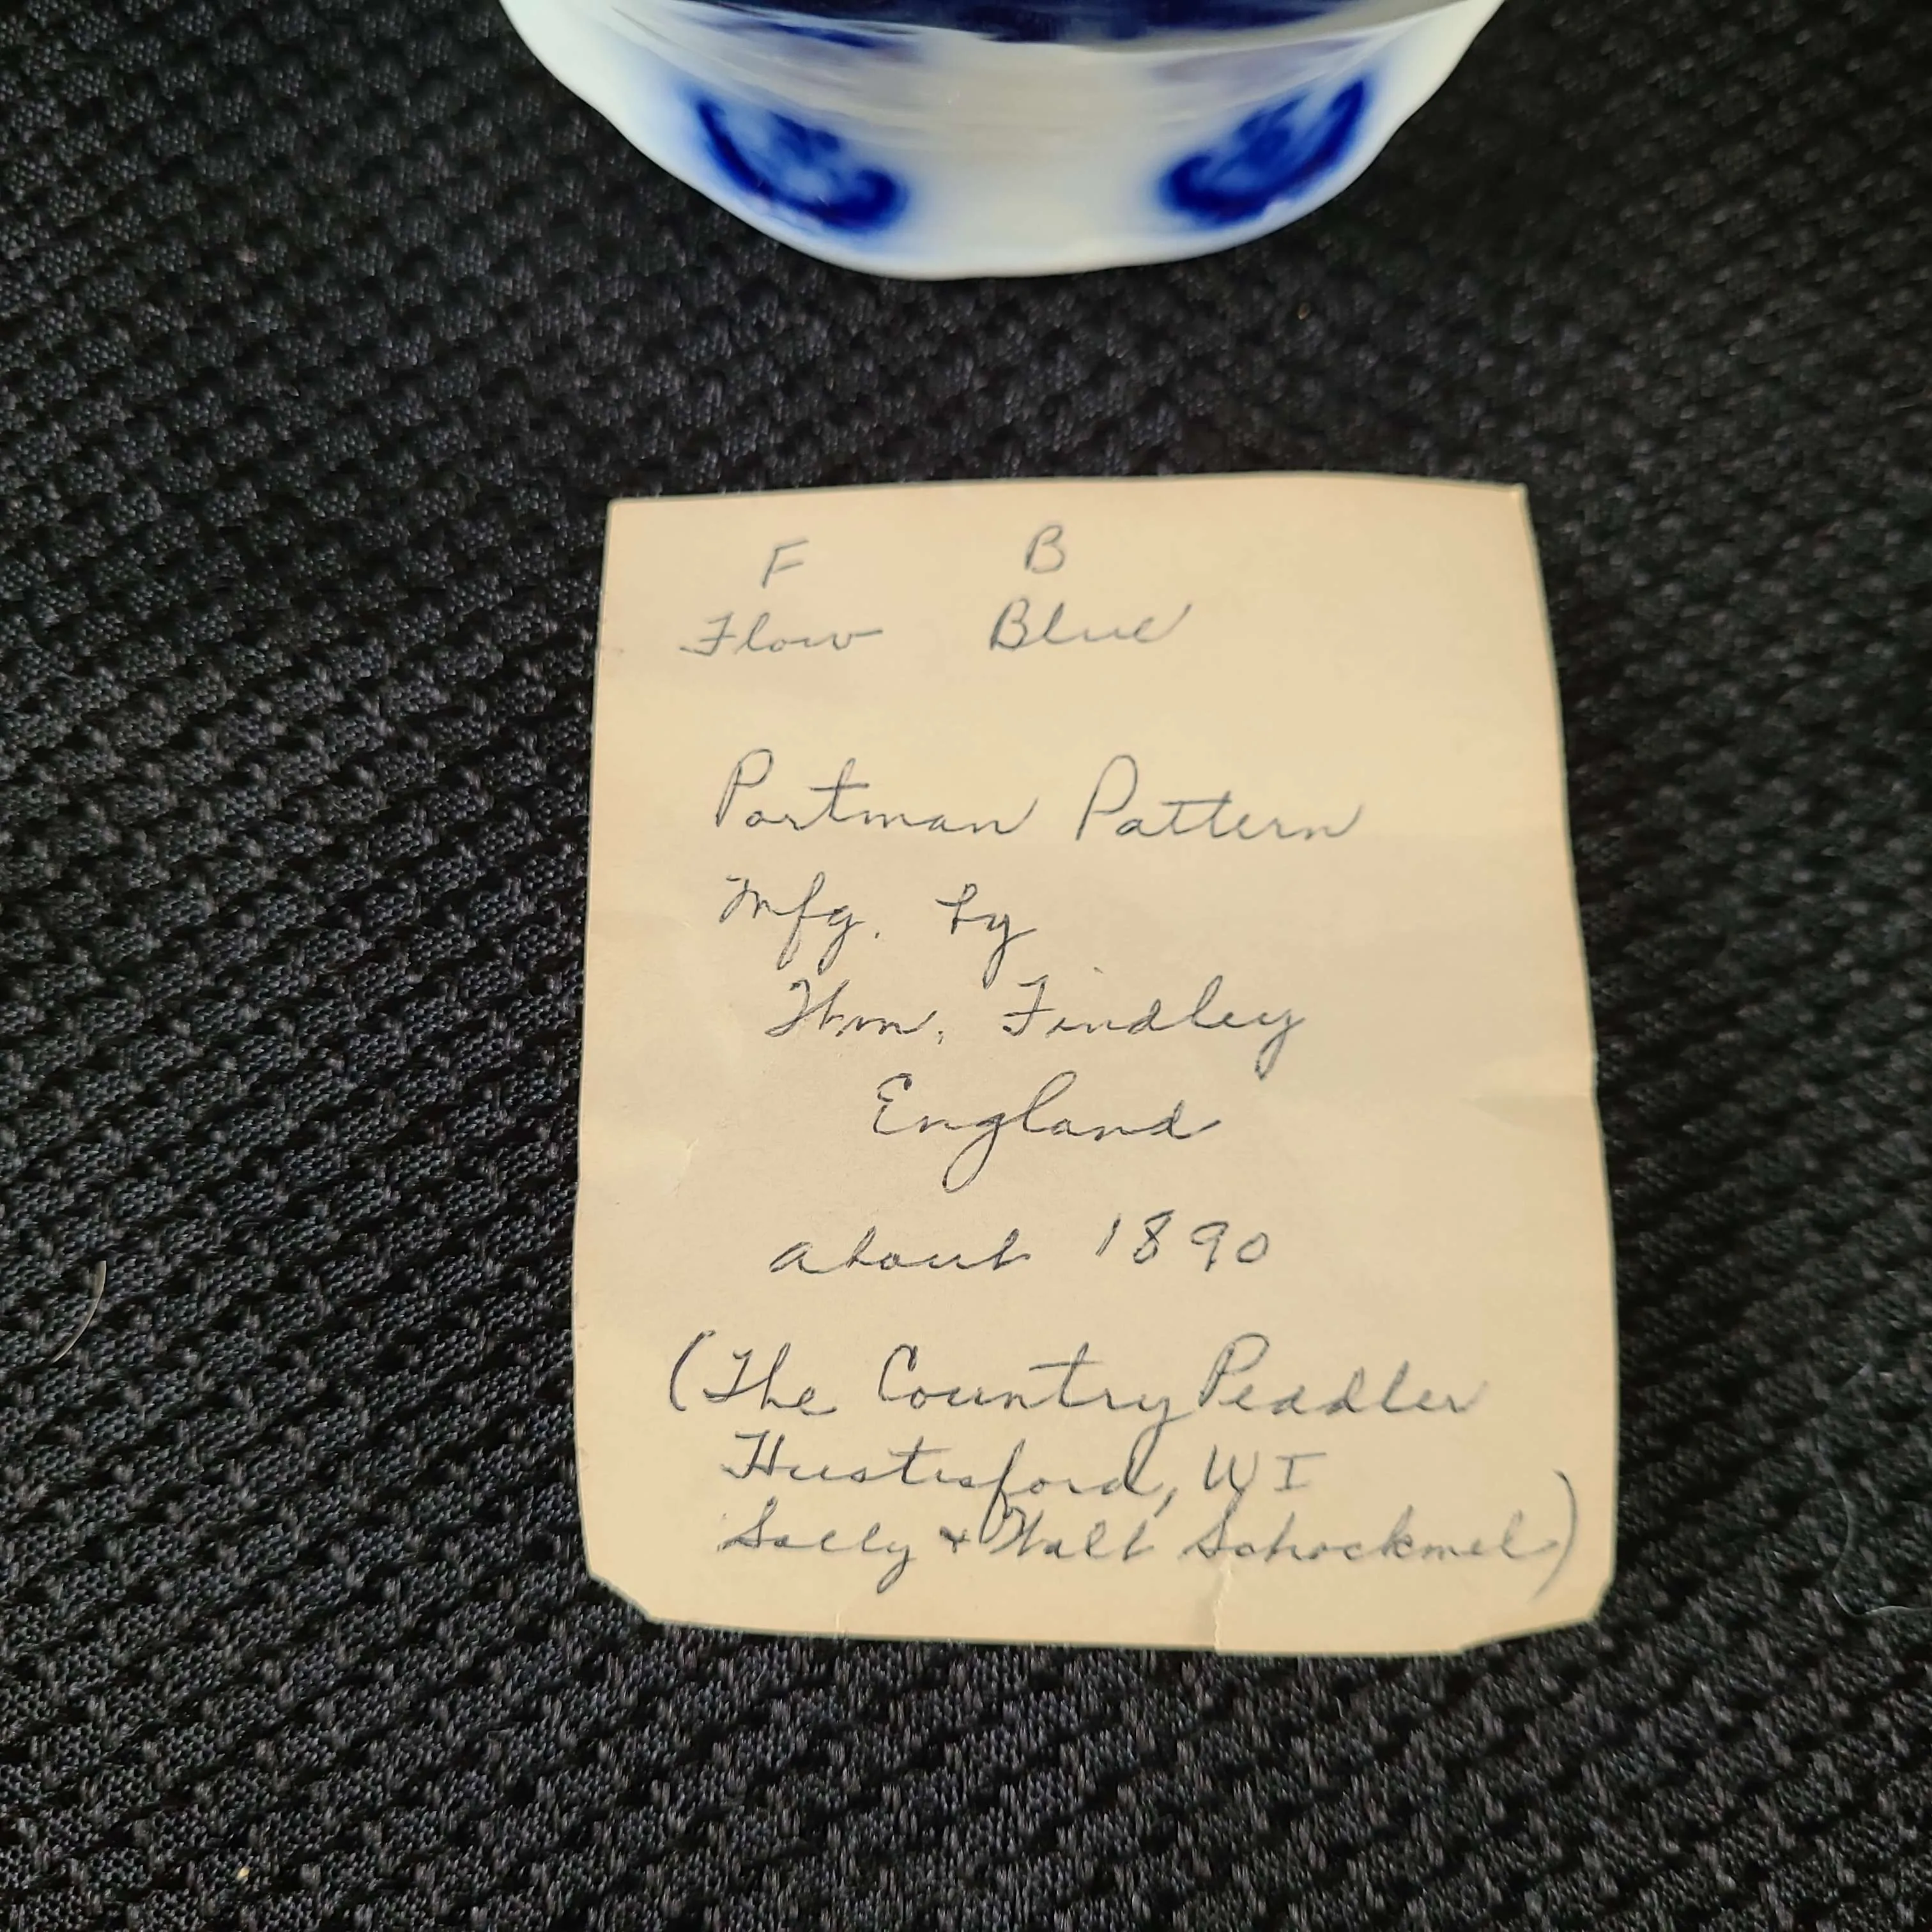 F B
Flow Blue
Portman Pattern
Mfg. by
Wm. Findley
England
about 1890
(The Country Peddler
Hustisford, WI
Sally + Walt Schockmel)